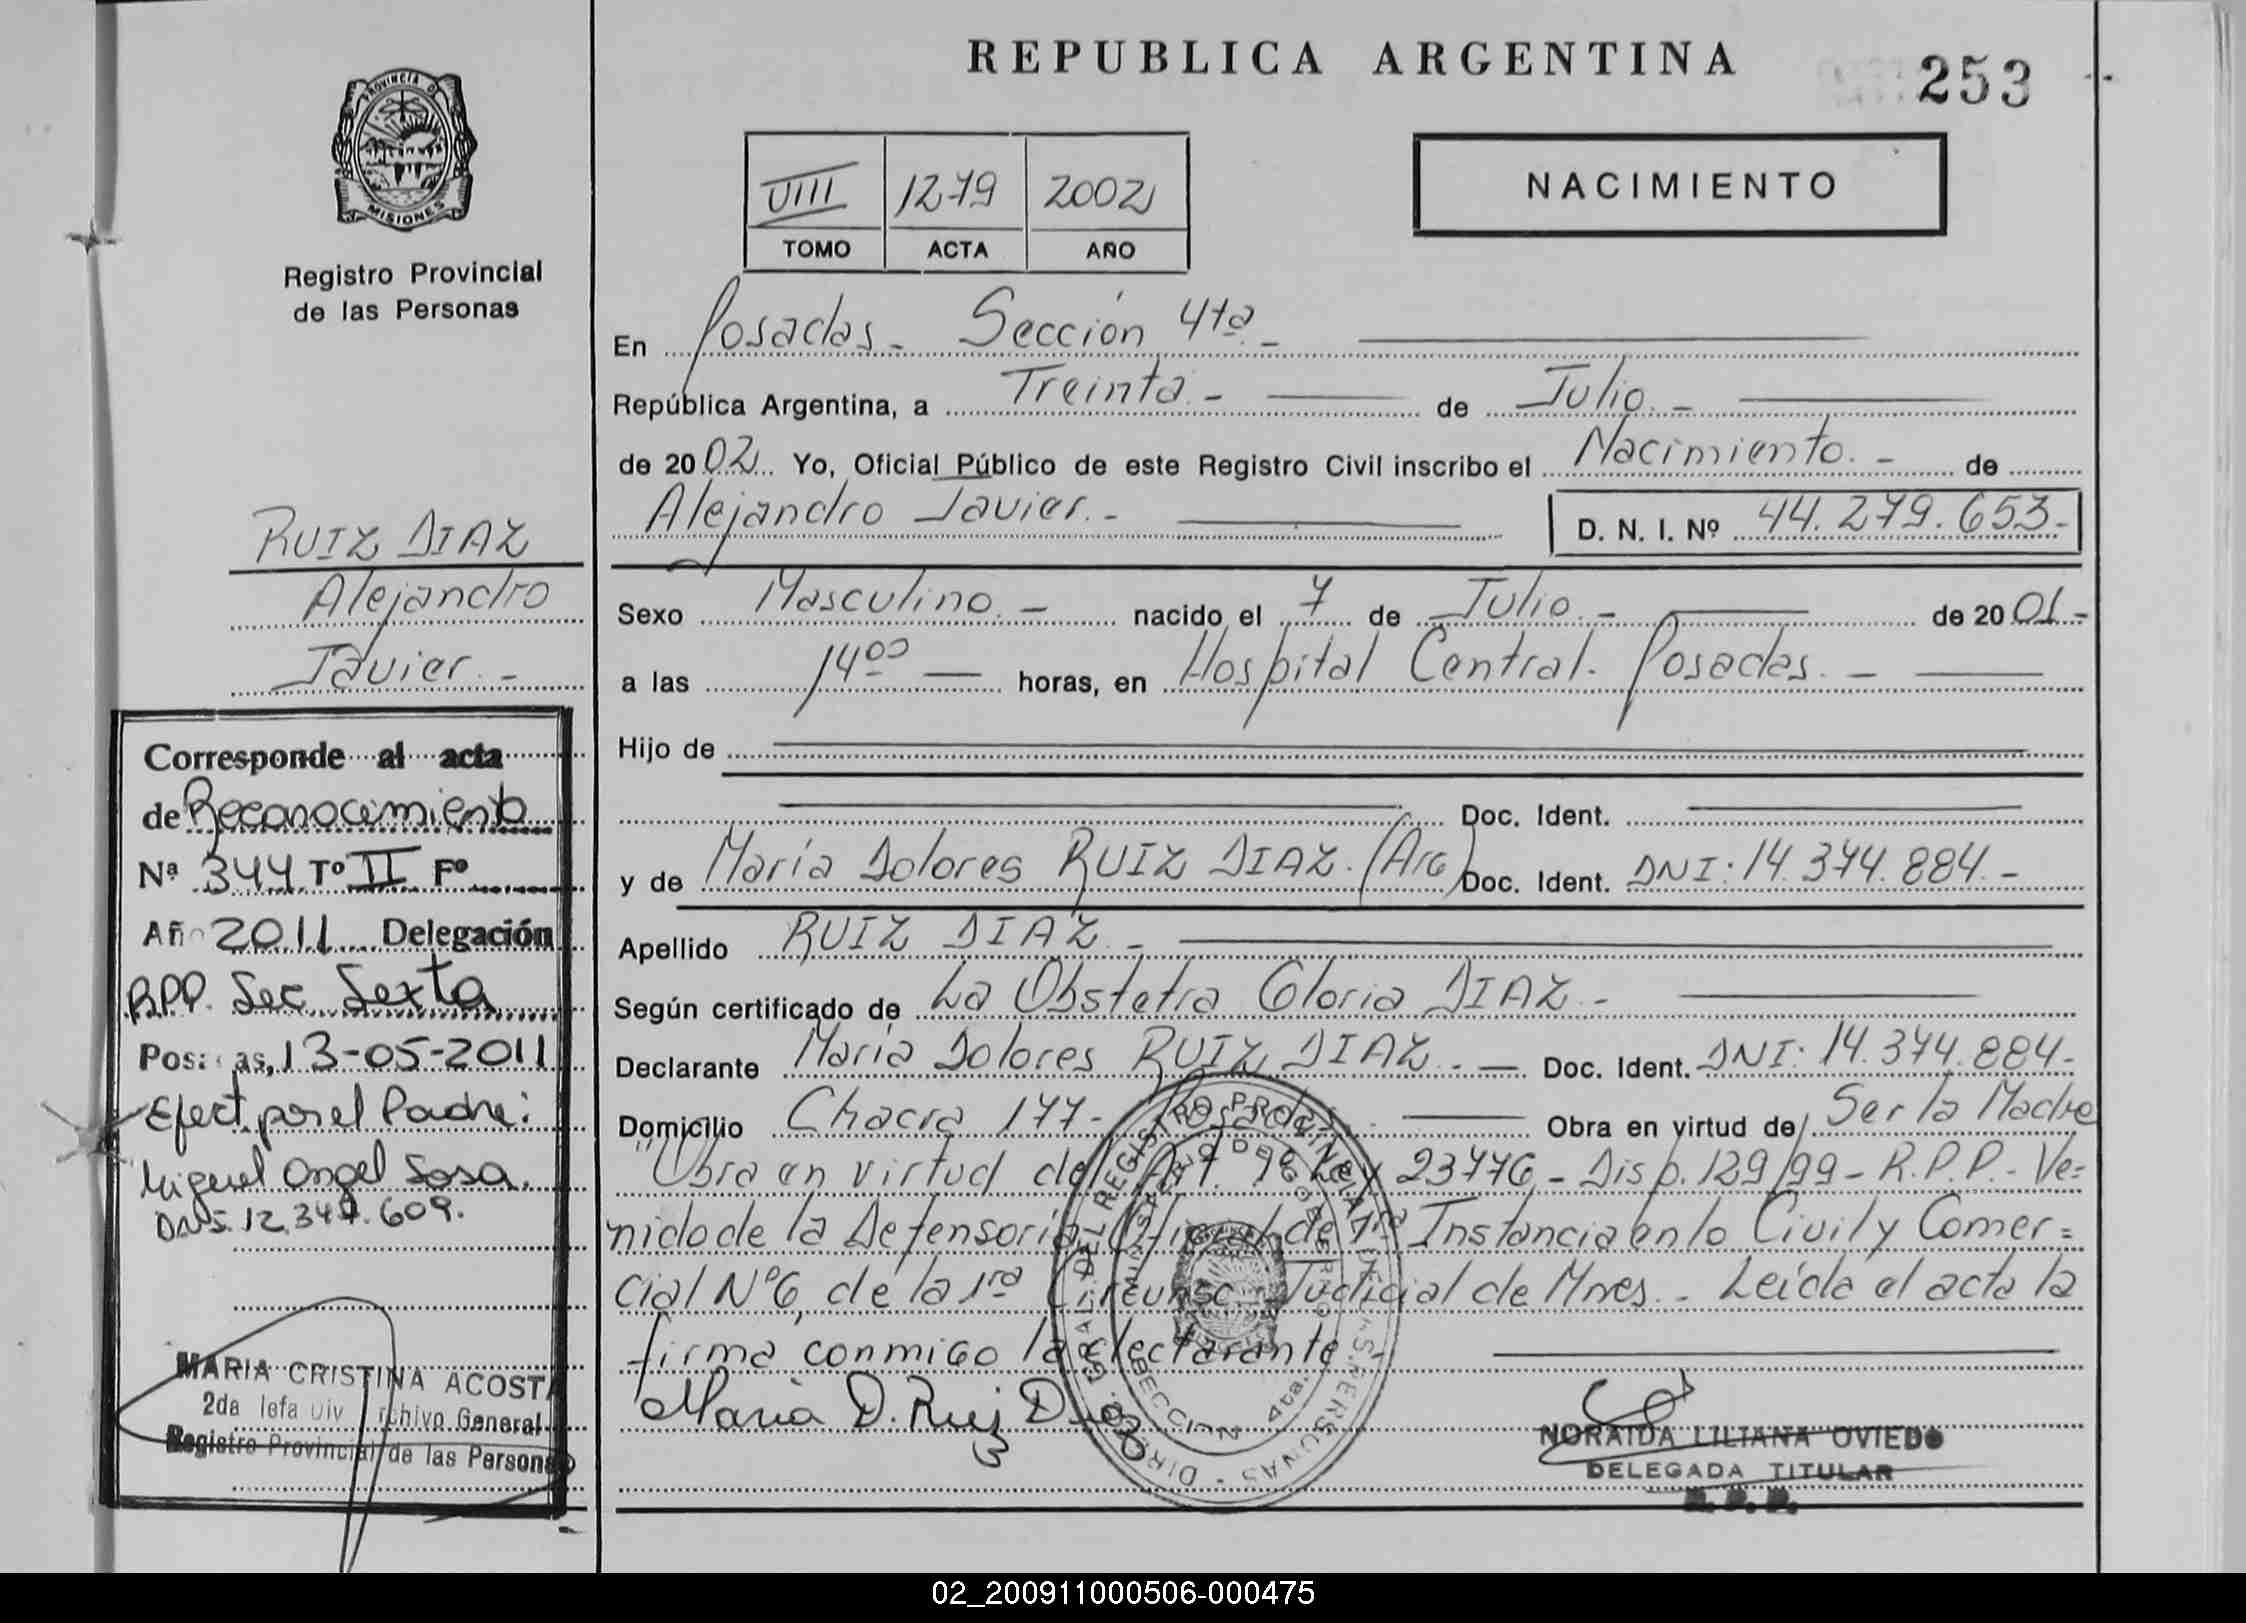 REPUBLICA ARGENTINA
253
PROVINCIA D
MISIONES
Registro Provincial
de las Personas
VIII 1279 2002
TOMO ACTA AÑO
NACIMIENTO
En Posadas.- Sección 4ta.-
República Argentina, a Treinta.- de Julio.-
de 2002 Yo, Oficial Público de este Registro Civil inscribo el Nacimiento.- de
Alejandro Javier.- D. N. I. Nº 44.279.653.-
Sexo Masculino.- nacido el 7 de Julio.- de 2001-
a las 14⁰⁰ horas, en Hospital Central. Posadas.-
Hijo de
Doc. Ident.
y de María Dolores RUIZ DIAZ. (Arg) Doc. Ident. DNI: 14.374.884.-
Apellido RUIZ DIAZ.-
Según certificado de La Obstetra Gloria DIAZ.-
Declarante María Dolores RUIZ DIAZ.- Doc. Ident. DNI: 14.374.884-
Domicilio Chacra 177- Posadas.- Obra en virtud de Ser la Madre
"Obra en virtud del Art. Ley 23776.- Disp. 129/99- R.P.P.- Ve=
nido de la Defensoría Oficial de 1ra Instancia en lo Civil y Comer=
cial Nº6, de la 1ra Circunsc. Judicial de Mnes.- Leída el acta la
firma conmigo la declarante
María D. Ruiz Diaz
NORAIDA LILIANA OVIEDO
DELEGADA TITULAR
R. P. P.
DIR. GRAL. DEL REGISTRO PROVINCIAL DE LAS PERSONAS
MINISTERIO DE GOBIERNO
SECCION 4ta.
RUIZ DIAZ
Alejandro
Javier.-
Corresponde al acta
de Reconocimiento
Nª 344 Tº II Fº
Año 2011 Delegación
R.P.P. Sec. Sexta
Posadas, 13-05-2011
Efect. por el Padre:
Miguel Angel Sosa.
DNI. 12.347.609.
MARIA CRISTINA ACOSTA
2da Jefa Div Archivo General
Registro Provincial de las Personas
02_200911000506-000475